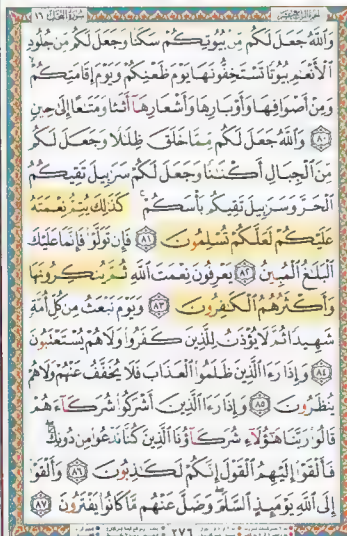 الجزء الرابع عشر سورة النحل ١٦
وَاللَّهُ جَعَلَ لَكُم مِّنۢ بُيُوتِكُمْ سَكَنًا وَجَعَلَ لَكُم مِّن جُلُودِ
الْأَنْعَٰمِ بُيُوتًا تَسْتَخِفُّونَهَا يَوْمَ ظَعْنِكُمْ وَيَوْمَ إِقَامَتِكُمْ ۙ
وَمِنْ أَصْوَافِهَا وَأَوْبَارِهَا وَأَشْعَارِهَآ أَثَٰثًا وَمَتَٰعًا إِلَىٰ حِينٍ
﴿٨٠﴾ وَاللَّهُ جَعَلَ لَكُم مِّمَّا خَلَقَ ظِلَٰلًا وَجَعَلَ لَكُم
مِّنَ الْجِبَالِ أَكْنَٰنًا وَجَعَلَ لَكُمْ سَرَٰبِيلَ تَقِيكُمُ
الْحَرَّ وَسَرَٰبِيلَ تَقِيكُم بَأْسَكُمْ ۚ كَذَٰلِكَ يُتِمُّ نِعْمَتَهُۥ
عَلَيْكُمْ لَعَلَّكُمْ تُسْلِمُونَ ﴿٨١﴾ فَإِن تَوَلَّوْا۟ فَإِنَّمَا عَلَيْكَ
الْبَلَٰغُ الْمُبِينُ ﴿٨٢﴾ يَعْرِفُونَ نِعْمَتَ اللَّهِ ثُمَّ يُنكِرُونَهَا
وَأَكْثَرُهُمُ الْكَٰفِرُونَ ﴿٨٣﴾ وَيَوْمَ نَبْعَثُ مِن كُلِّ أُمَّةٍ
شَهِيدًا ثُمَّ لَا يُؤْذَنُ لِلَّذِينَ كَفَرُوا۟ وَلَا هُمْ يُسْتَعْتَبُونَ
﴿٨٤﴾ وَإِذَا رَءَا الَّذِينَ ظَلَمُوا۟ الْعَذَابَ فَلَا يُخَفَّفُ عَنْهُمْ وَلَا هُمْ
يُنظَرُونَ ﴿٨٥﴾ وَإِذَا رَءَا الَّذِينَ أَشْرَكُوا۟ شُرَكَآءَهُمْ
قَالُوا۟ رَبَّنَا هَٰٓؤُلَآءِ شُرَكَآؤُنَا الَّذِينَ كُنَّا نَدْعُوا۟ مِن دُونِكَ ۖ
فَأَلْقَوْا۟ إِلَيْهِمُ الْقَوْلَ إِنَّكُمْ لَكَٰذِبُونَ ﴿٨٦﴾ وَأَلْقَوْا۟
إِلَى اللَّهِ يَوْمَئِذٍ السَّلَمَ ۖ وَضَلَّ عَنْهُم مَّا كَانُوا۟ يَفْتَرُونَ ﴿٨٧﴾
٢٧٦